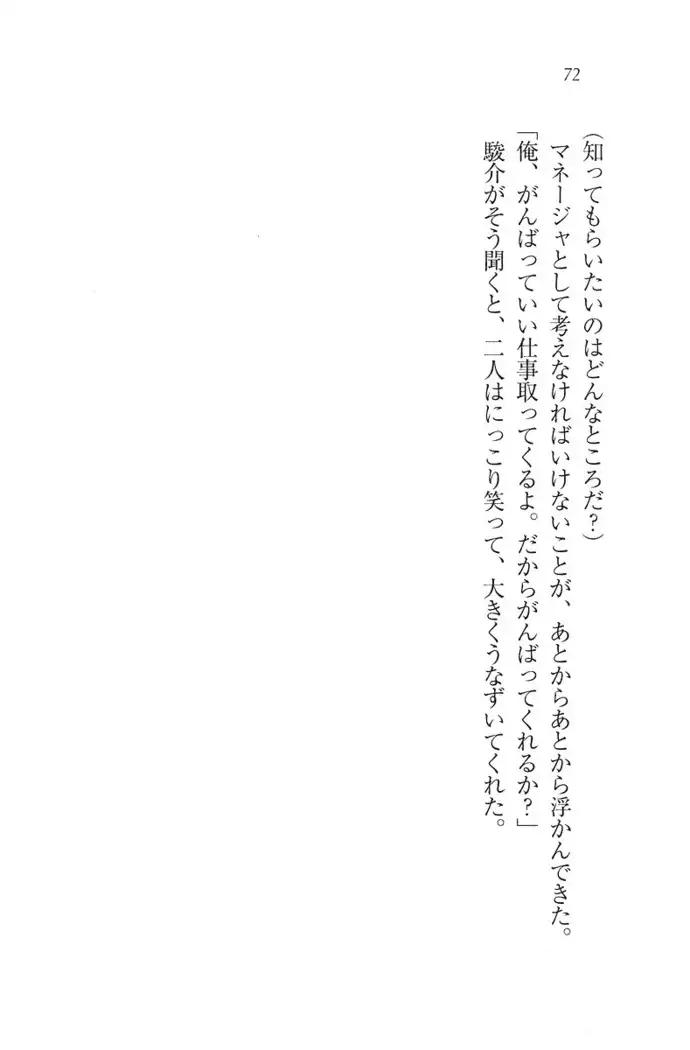 72
(知ってもらいたいのはどんなところだ？)
マネージャとして考えなければいけないことが、あとからあとから浮かんできた。
「俺、がんばっていい仕事取ってくるよ。だからがんばってくれるか？」
駿介がそう聞くと、二人はにっこり笑って、大きくうなずいてくれた。